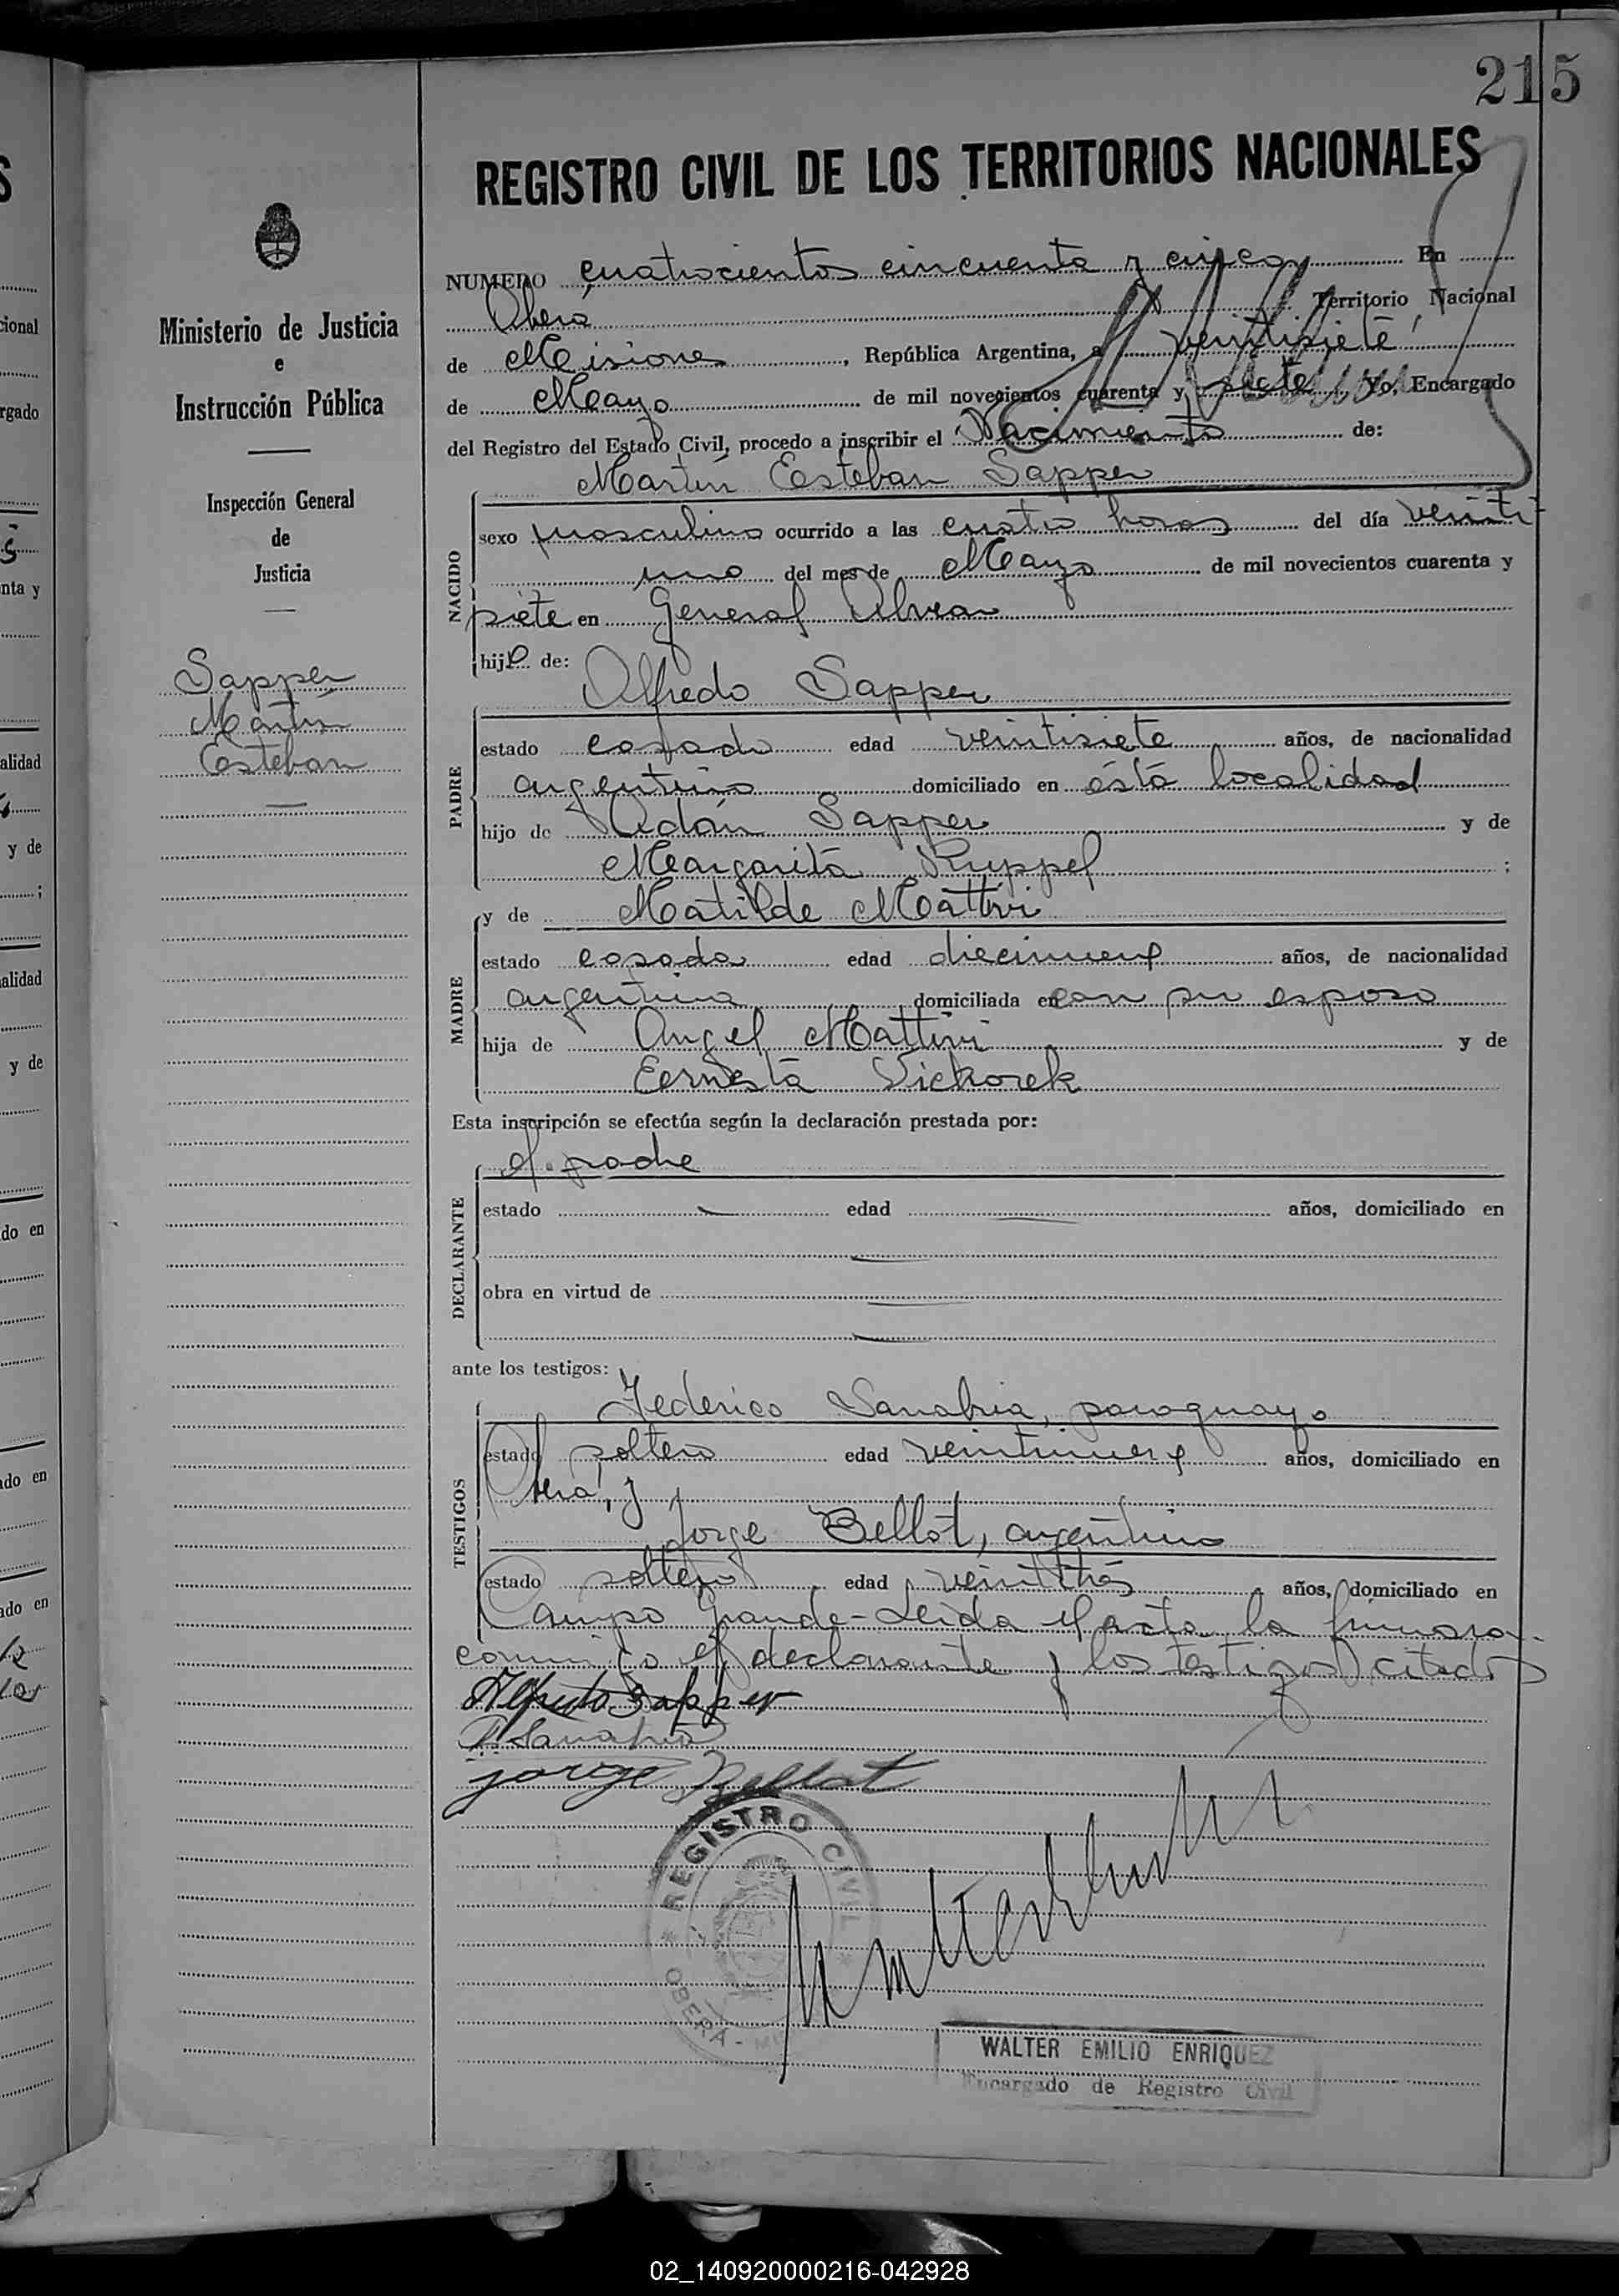 215
REGISTRO CIVIL DE LOS TERRITORIOS NACIONALES
Ministerio de Justicia
e
Instrucción Pública
Inspección General
de
Justicia
Sapper
Martín
Esteban
NUMERO cuatrocientos cincuenta y cinco En
Oberá Territorio Nacional
de Misiones, República Argentina, a veintisiete
de Mayo de mil novecientos cuarenta y siete, Yo, Encargado
del Registro del Estado Civil, procedo a inscribir el Nacimiento de:
Martín Esteban Sapper
NACIDO
sexo masculino ocurrido a las cuatro horas del día veinti
uno del mes de Mayo de mil novecientos cuarenta y
siete en General Alvear
hijo de:
Alfredo Sapper
PADRE
estado casado edad veintisiete años, de nacionalidad
argentino domiciliado en ésta localidad
hijo de Adán Sapper y de
Margarita Ruppel ;
y de Matilde Mattivi
MADRE
estado casada edad diecinueve años, de nacionalidad
argentina domiciliada en con su esposo
hija de Angel Mattivi y de
Ernesta
Esta inscripción se efectúa según la declaración prestada por:
el padre
DECLARANTE
estado edad años, domiciliado en
obra en virtud de
ante los testigos:
Federico Sanabria, paraguayo
TESTIGOS
estado soltero edad veintinueve años, domiciliado en
Oberá, y
Jorge Bellot, argentino
estado soltero edad veintitrés años, domiciliado en
Campo Grande - Leida el acta la firmaron
conmigo el declarante y los testigos citados
Alfredo Sapper
F. Sanabria
jorge Bellot
REGISTRO CIVIL
OBERÁ -
WALTER EMILIO ENRIQUEZ
Encargado de Registro Civil
02_140920000216-042928